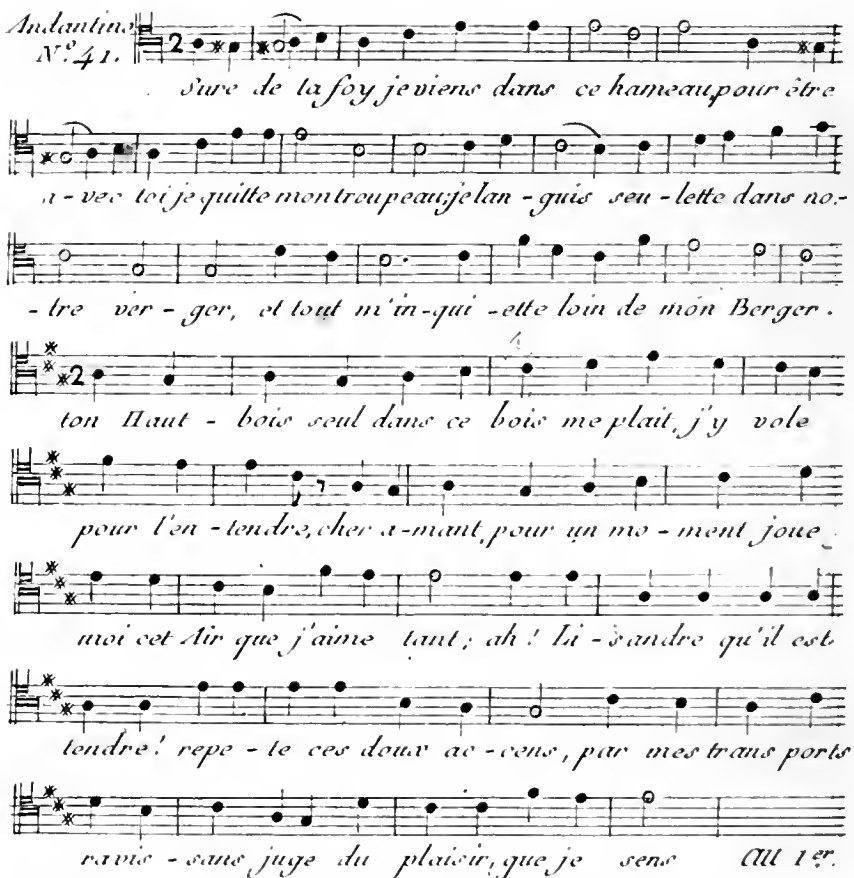 Andantino
N.º 41.
Sure de ta foy je viens dans ce hameau pour être
a-vec toi je quitte mon troupeau; je lan-guis seu-lette dans no-
-tre ver-ger, et tout m'in-qui-ette loin de mon Berger.
ton Haut-bois seul dans ce bois me plait, j'y vole
pour l'en-tendre, cher a-mant, pour un mo-ment joue
moi cet Air que j'aime tant; ah! Li-sandre qu'il est
tendre! repe-te ces doux ac-cens, par mes trans ports
ravis-sans juge du plaisir, que je sens au 1er.